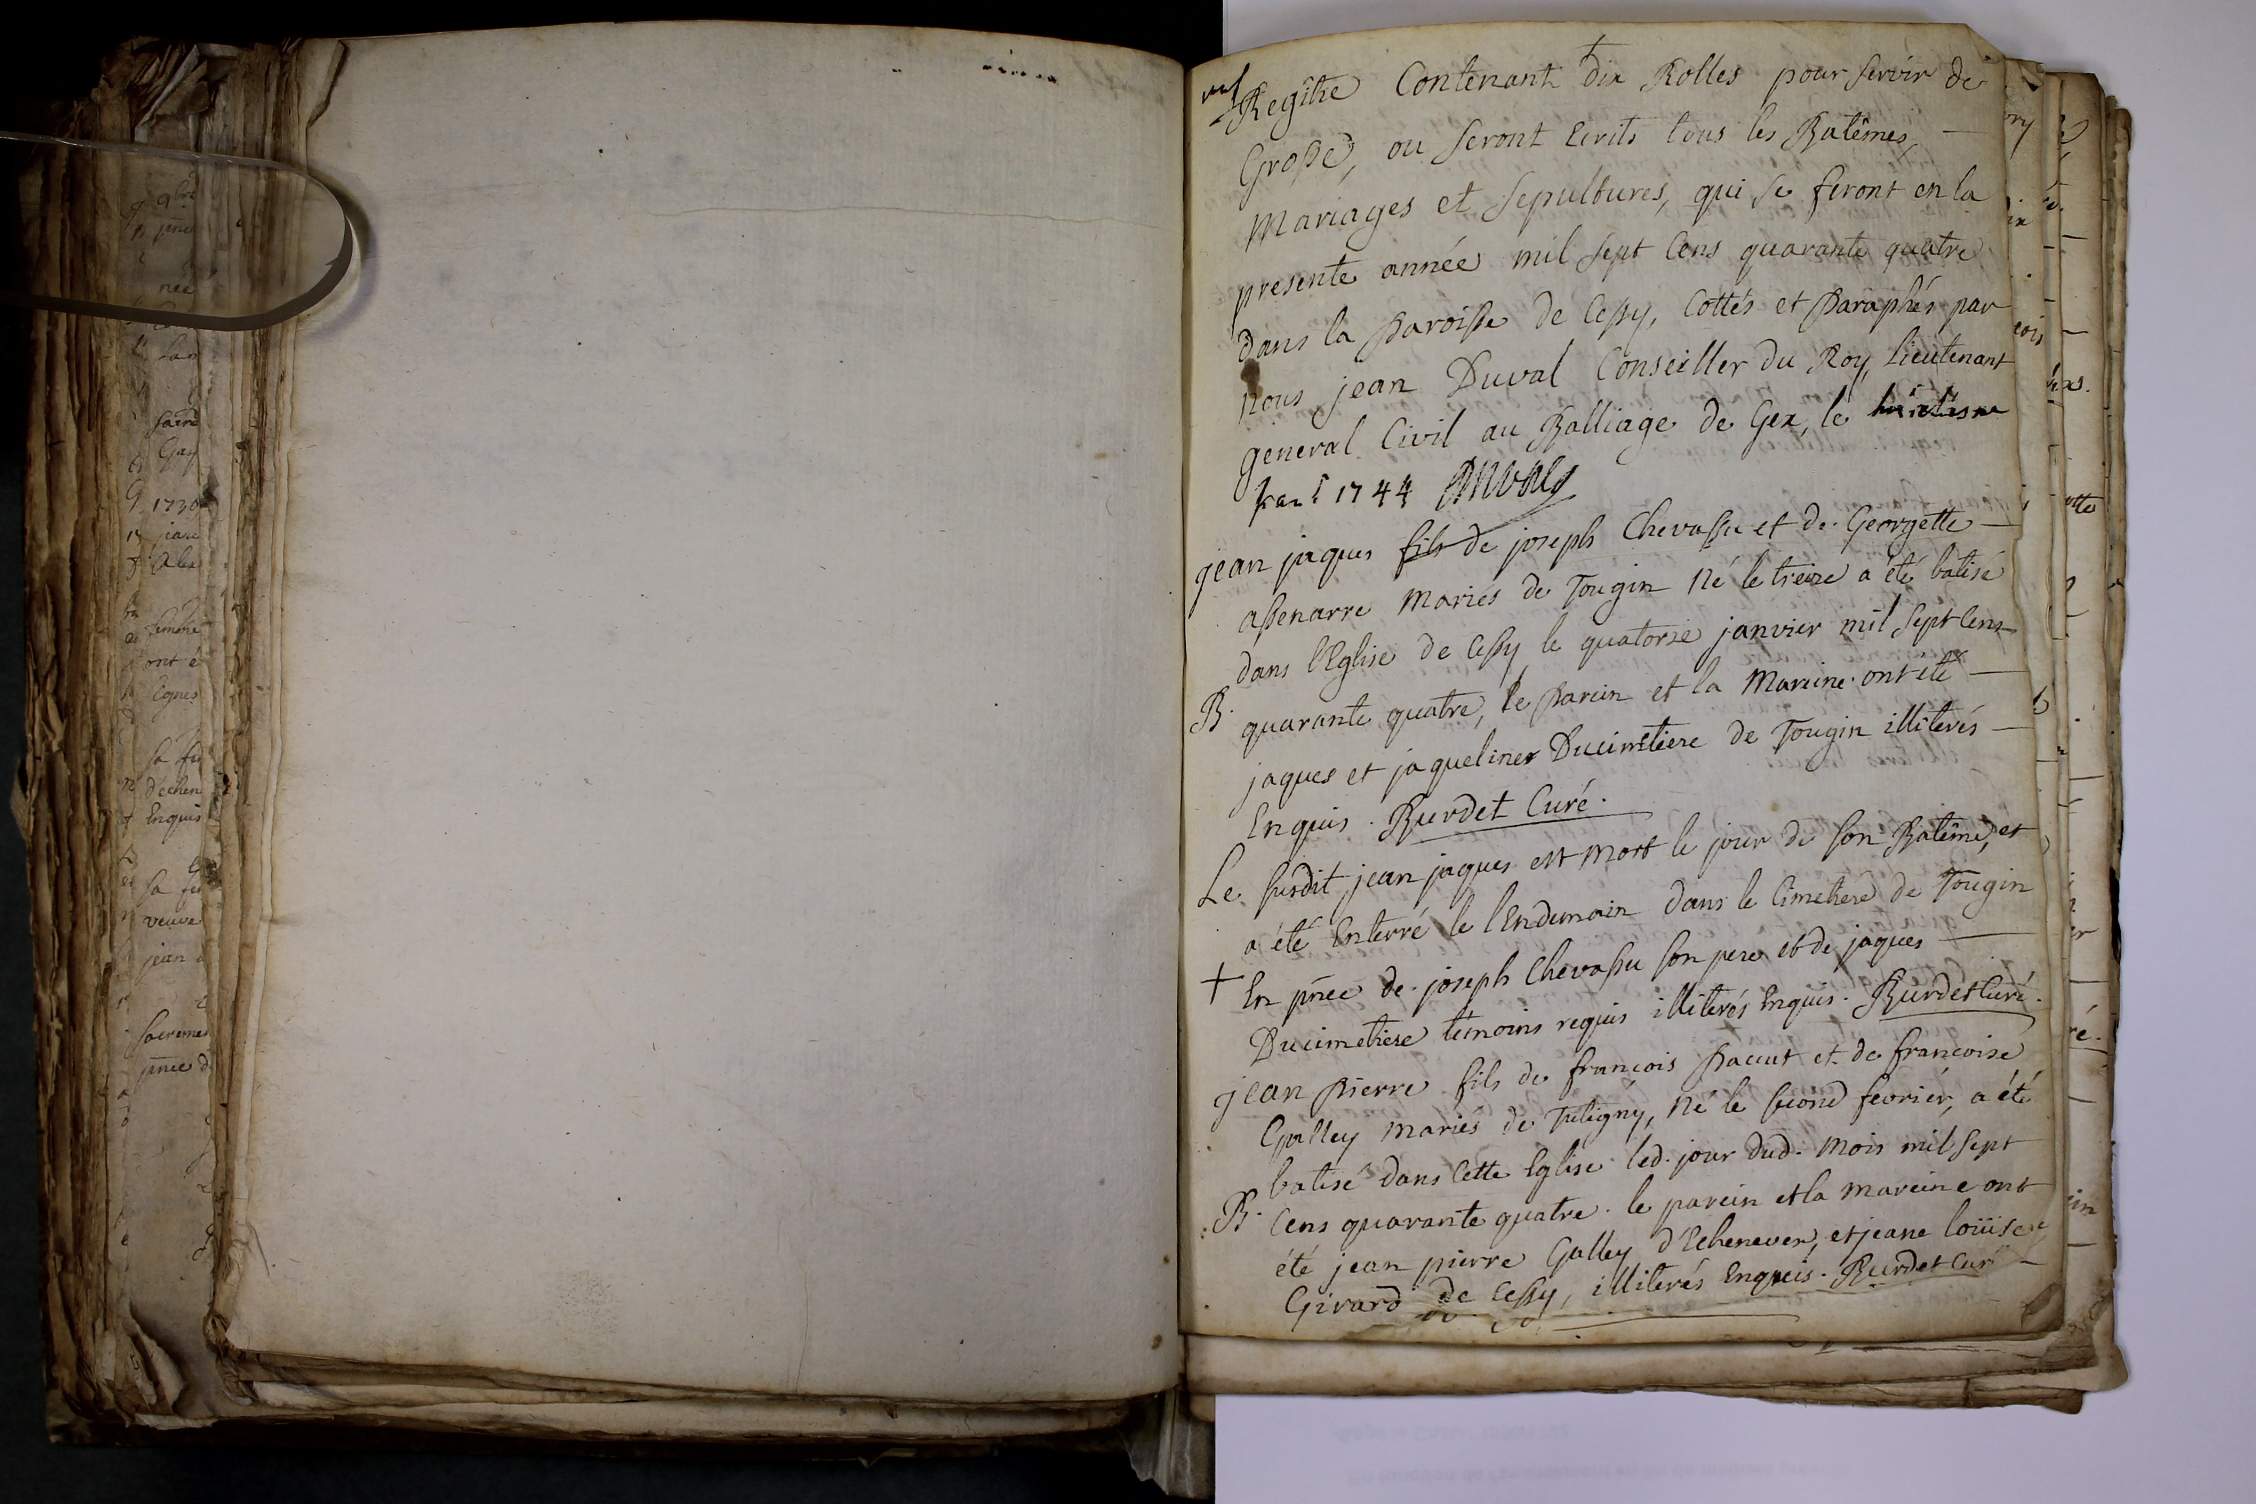 Regitre Contenant dix Rolles pour servir de
Grosse, ou seront Ecrits tous les Batêmes,
Mariages et sepultures, qui se feront en la
presente année mil sept Cens quarante quatre
dans la paroisse de Cessy, Cottés et paraphés par
nous jean Duval Conseiller du Roy, Lieutenant
general Civil au Balliage de Gex, le
1744 Duval
jean jaques fils de joseph Chevassu et de Georgette
assenarre Mariés de Tougin Né le treize a été batisé
dans l'Eglise de Cessy le quatorze janvier mil sept Cens
B. quarante quatre, le parein et la Mareine ont été
jaques et jaqueline Ducimetiere de Tougin illiterés
Enquis. Burdet Curé.
Le susdit jean jaques est mort le jour de son Batême, et
a été Enterré le lEndemain dans le Cimetiere de Tougin
+ En pñce de joseph Chevassu son pere et de jaques
Ducimetiere témoins requis illiterés Enquis. Burdet Curé.
jean pierre fils de françois pacut et de françoise
Galley mariés de Tutigny, Né le second fevrier, a été
batisé dans Cette Eglise led. jour dud. mois mil sept
B. Cens quarante quatre. le parein et la mareine ont
été jean pierre Galley d'Echenevex, et jeane loüise
Girard de Cessy, illiterés Enquis. Burdet Curé